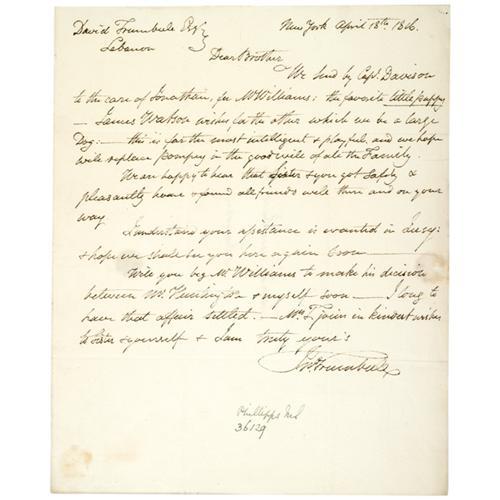 David Trumbull Esq
New York April 18th. 1806.
Lebanon
Dear Brother
We send by Capt. Davison
to the care of Jonathan, for Mr Williams: the favorite little puppy
— James Watson wishes for the other which will be a large
Dog: — this is far the most intelligent & playful, and we hope
will replace Pompey in the good will of all the Family.
We are happy to hear that Sister & you got safely &
pleasantly home & found all friends well there and on your
way
I understand your assistance is wanted in Jersey:
& hope we shall see you here again soon —
Will you beg Mr. Williams to make his decision
between Mr. Huntington & myself soon — I long to
have that affair settled. — Mrs T. joins in kindest wishes
to Sister & yourself & I am truly your's
Jno Trumbull
Phillipps MS
36129